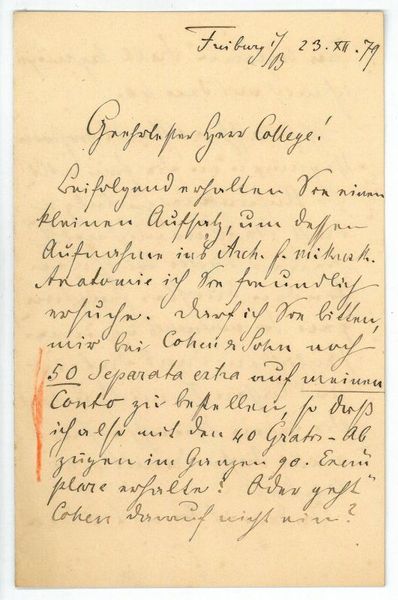 Freiburg i/B 23. XII. 79
Geehrtester Herr College!
Beifolgend erhalten Sie einen
kleinen Aufsatz, um dessen
Aufnahme in's Arch. f. mikrosk.
Anatomie ich Sie freundlich
ersuche. Darf ich Sie bitten,
mir bei Cohen & Sohn noch
50 Separata extra auf meinen
Conto zu bestellen, so daß
ich also mit den 40 Gratis-Ab
zügen im Ganzen 90 Exem
plare erhalte? Oder geht
Cohen darauf nicht ein?